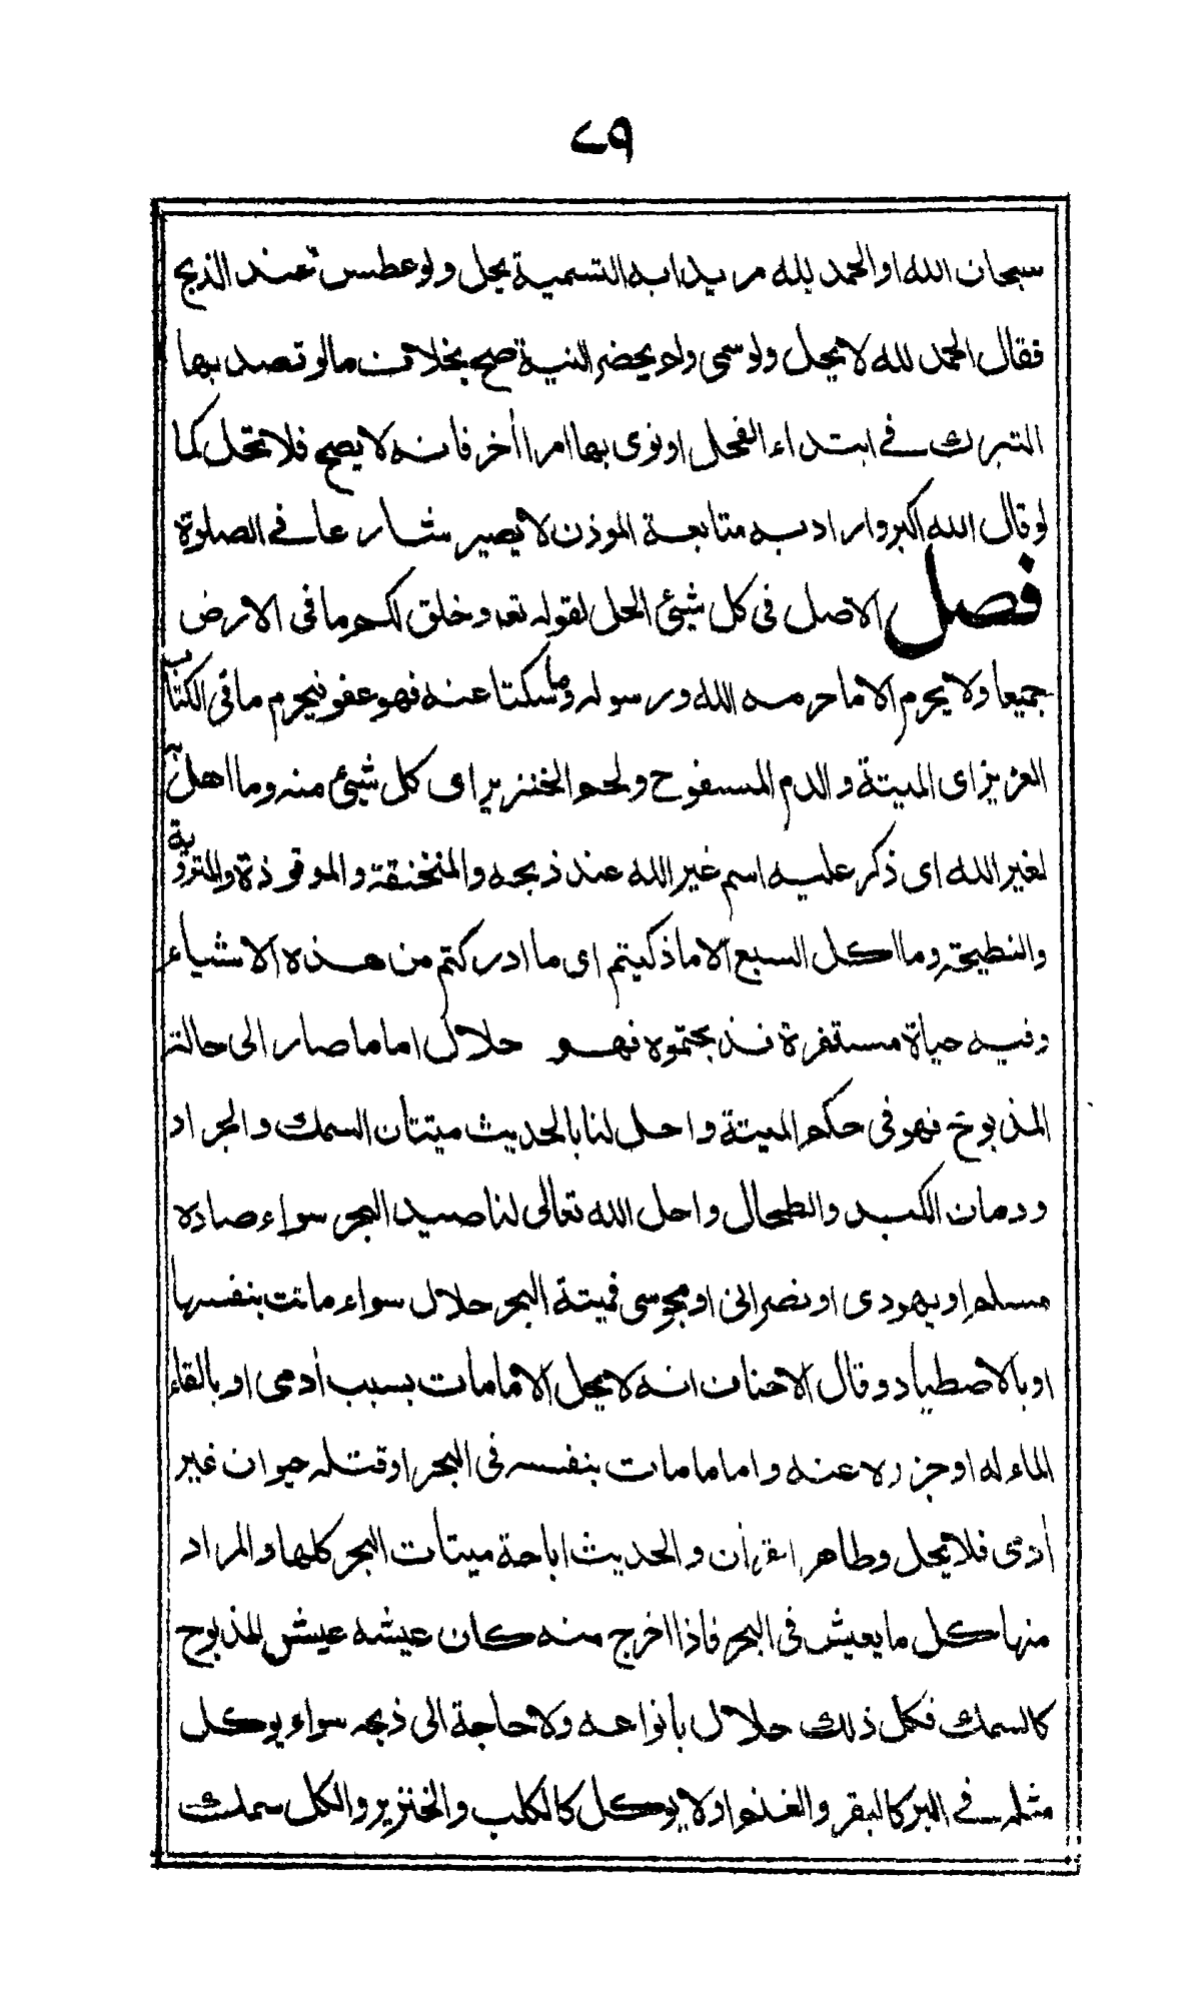 ٧٩
سبحان الله او الحمد لله مريدا به التسمية يحل ولو عطس عند الذبح
فقال الحمد لله لا يحل ولو سمى ولم يحضر النية صح بخلاف مالو قصد بها
التبرك فى ابتداء الفعل او نوى بها امرا أخر فانه لا يصح فلا تحل كما
لو قال الله اكبر واراد به متابعة الموذن لا يصير شارعا فى الصلوة
فصل الاصل فى كل شيئ الحل لقوله تعه وخلق لكم ما فى الارض
جميعا ولا يحرم الا ما حرمه الله ورسوله وما سكتا عنه فهو عفو فيحرم ما فى الكتاب
العزيز اى الميتة والدم المسفوح ولحم الخنزير اى كل شيئ منه وما اهل به
لغير الله اى ذكر عليه اسم غير الله عند ذبحه والمنخنقة والموقوذة والمتردية
والنطيحة وما اكل السبع الا ما ذكيتم اى ما ادركتم من هذه الاشياء
وفيه حياة مستقرة فذبحتموه فهو حلال اما ما صار الى حالة
المذبوح فهو فى حكم الميتة واحل لنا بالحديث ميتتان السمك والجراد
ودمان الكبد والطحال واحل الله تعالى لنا صيد البحر سواء صاده
مسلم او يهودى او نصرانى او مجوسى فميتة البحر حلال سواء ماتت بنفسها
او بالاصطياد وقال الاحناف انه لا يحل الا مامات بسبب أدمى او بالقاء
الماء له او جزره عنه واما مامات بنفسه فى البحر او قتله حيوان غير
أدمى فلا يحل وظاهر القرأن والحديث اباحة ميتأت البحر كلها والمراد
منها كل ما يعيش فى البحر فاذا اخرج منه كان عيشه عيش المذبوح
كالسمك فكل ذلك حلال بأنواعه ولا حاجة الى ذبحه سواء يوكل
مثله فى البر كالبقر والغنم او لا يوكل كالكلب والخنزير والكل سمك